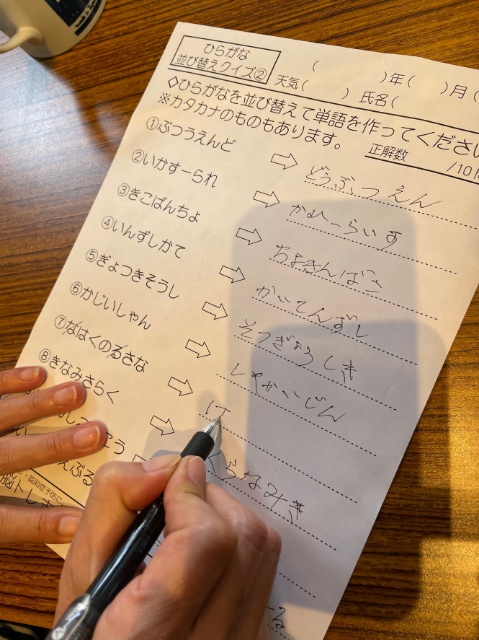 ひらがな
並び替えクイズ②
( )年( )月(
天気( ) 氏名(
◇ひらがなを並び替えて単語を作ってください
※カタカナのものもあります。
正解数 /10
①ぶつうえんど ⇨ どうぶつえん
②いかすーられ ⇨ かれーらいす
③きこばんちょ ⇨ ちょきんばこ
④いんずしかて ⇨ かいてんずし
⑤ぎょつきそうし ⇨ そつぎょうしき
⑥かじいしゃん ⇨ しゃかいじん
⑦なはくのるさな ⇨ は
⑧きなみさらく ⇨ くらなみき